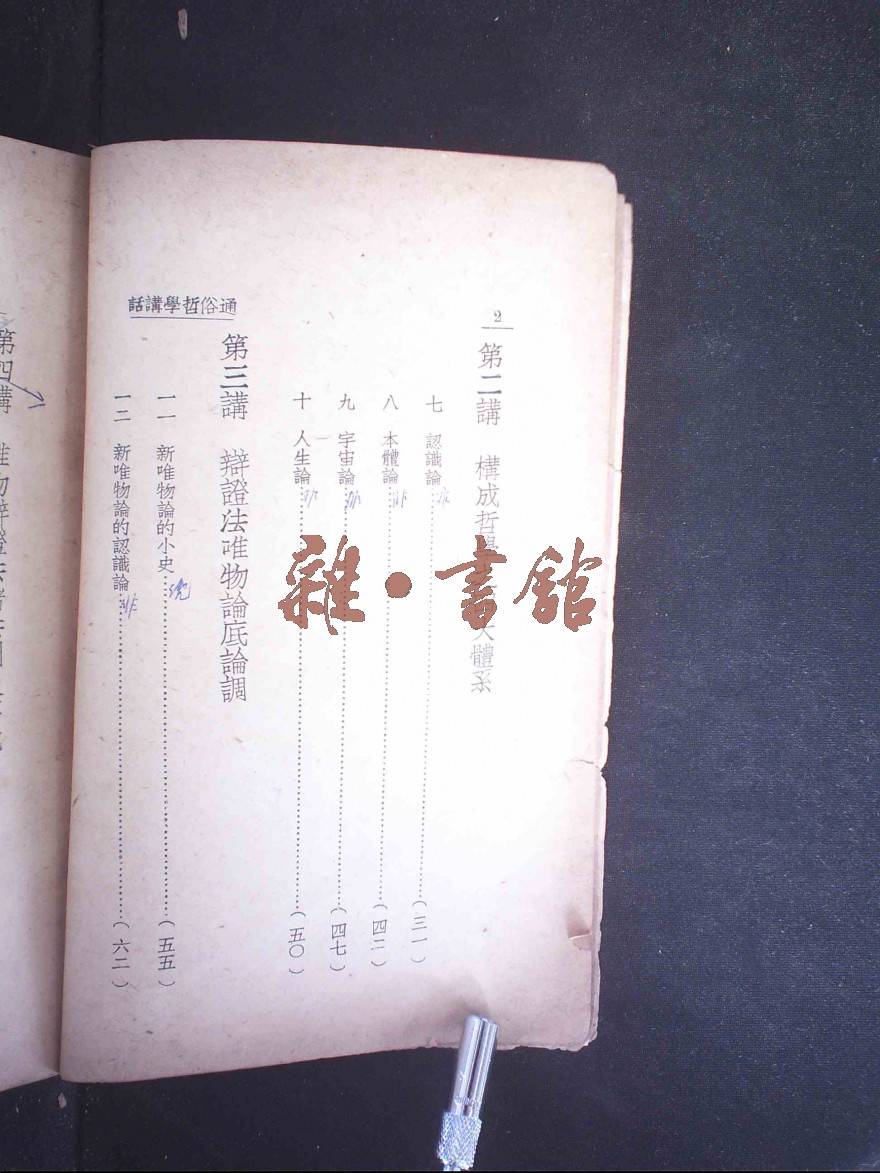 2
第二講 構成哲學 大體系
七 認識論…(三一)
八 本體論…(四二)
九 宇宙論…(四七)
十 人生論…(五〇)
第三講 辯證法唯物論底論調
一一 新唯物論的小史…(五五)
一二 新唯物論的認識論…(六二)
通俗哲學講話
第四講
雜·書館